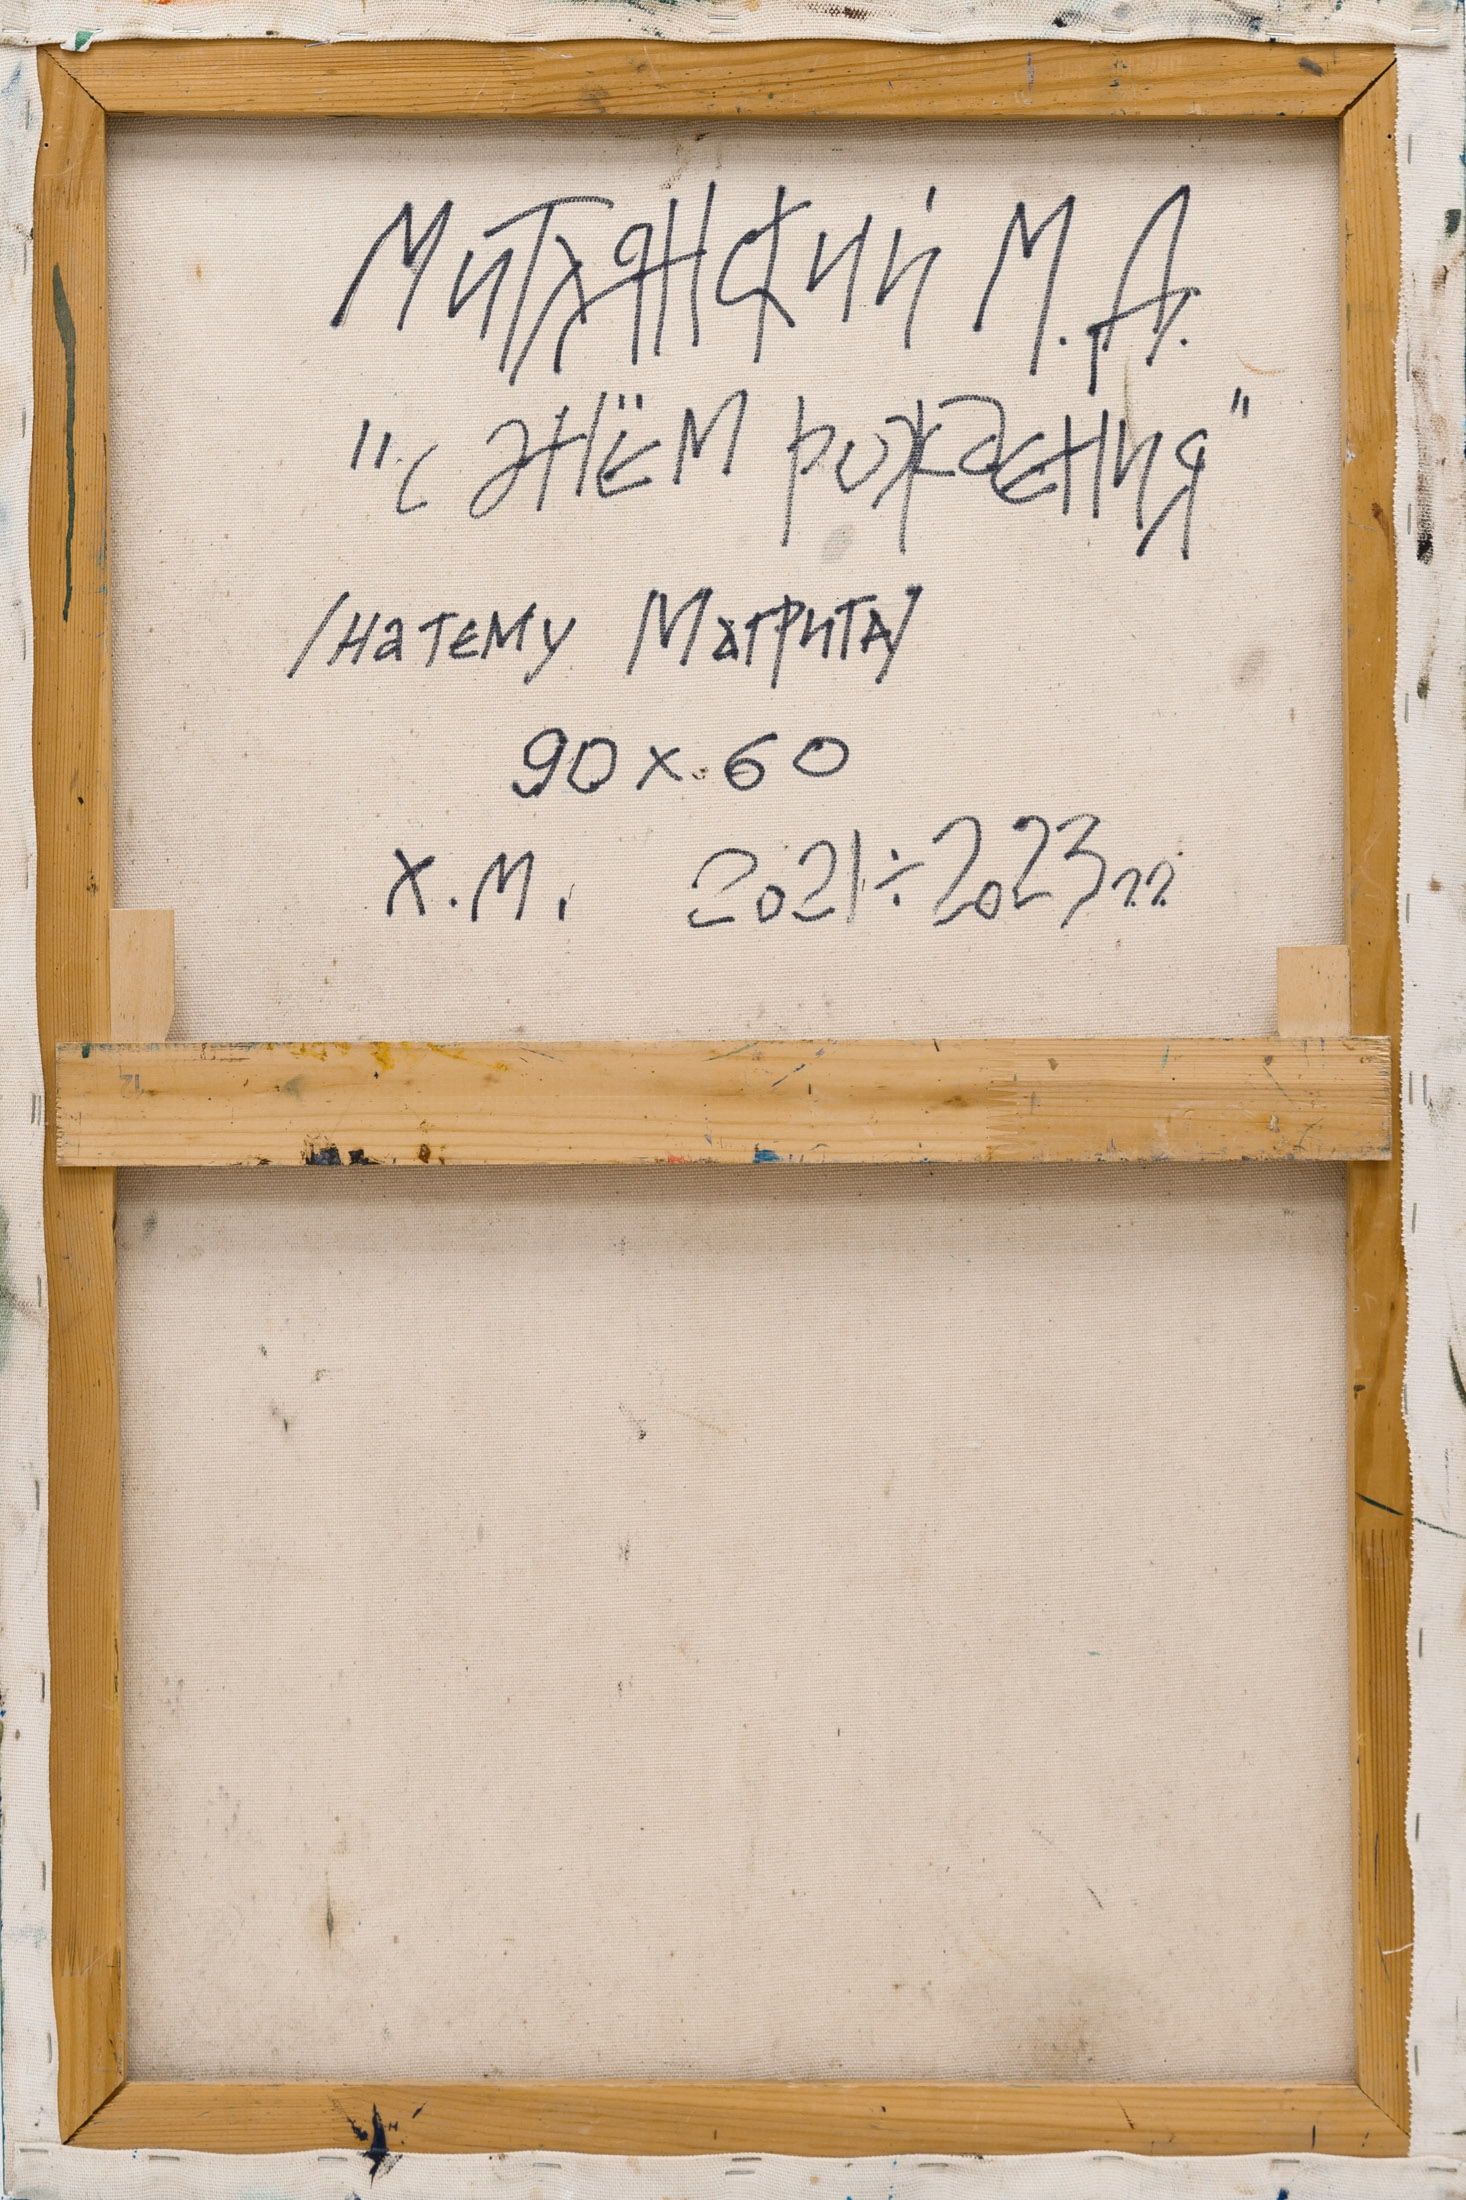 Митлянский М.Д.
"с днём рождения"
/на тему Магрита/
90 x 60
х.м. 2021÷2023гг